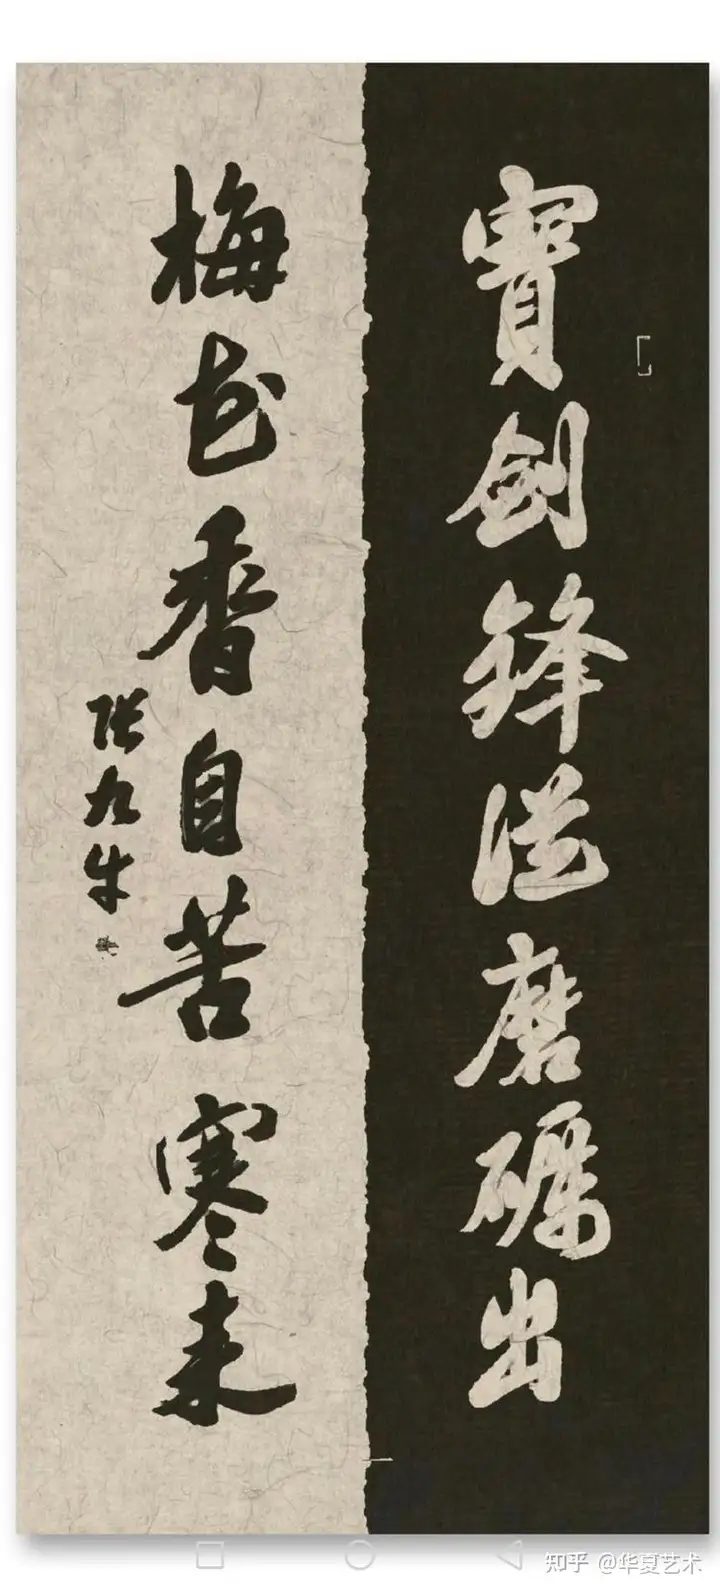 寶劍鋒從磨礪出
梅花香自苦寒来
张九牛
知乎 @华夏艺术